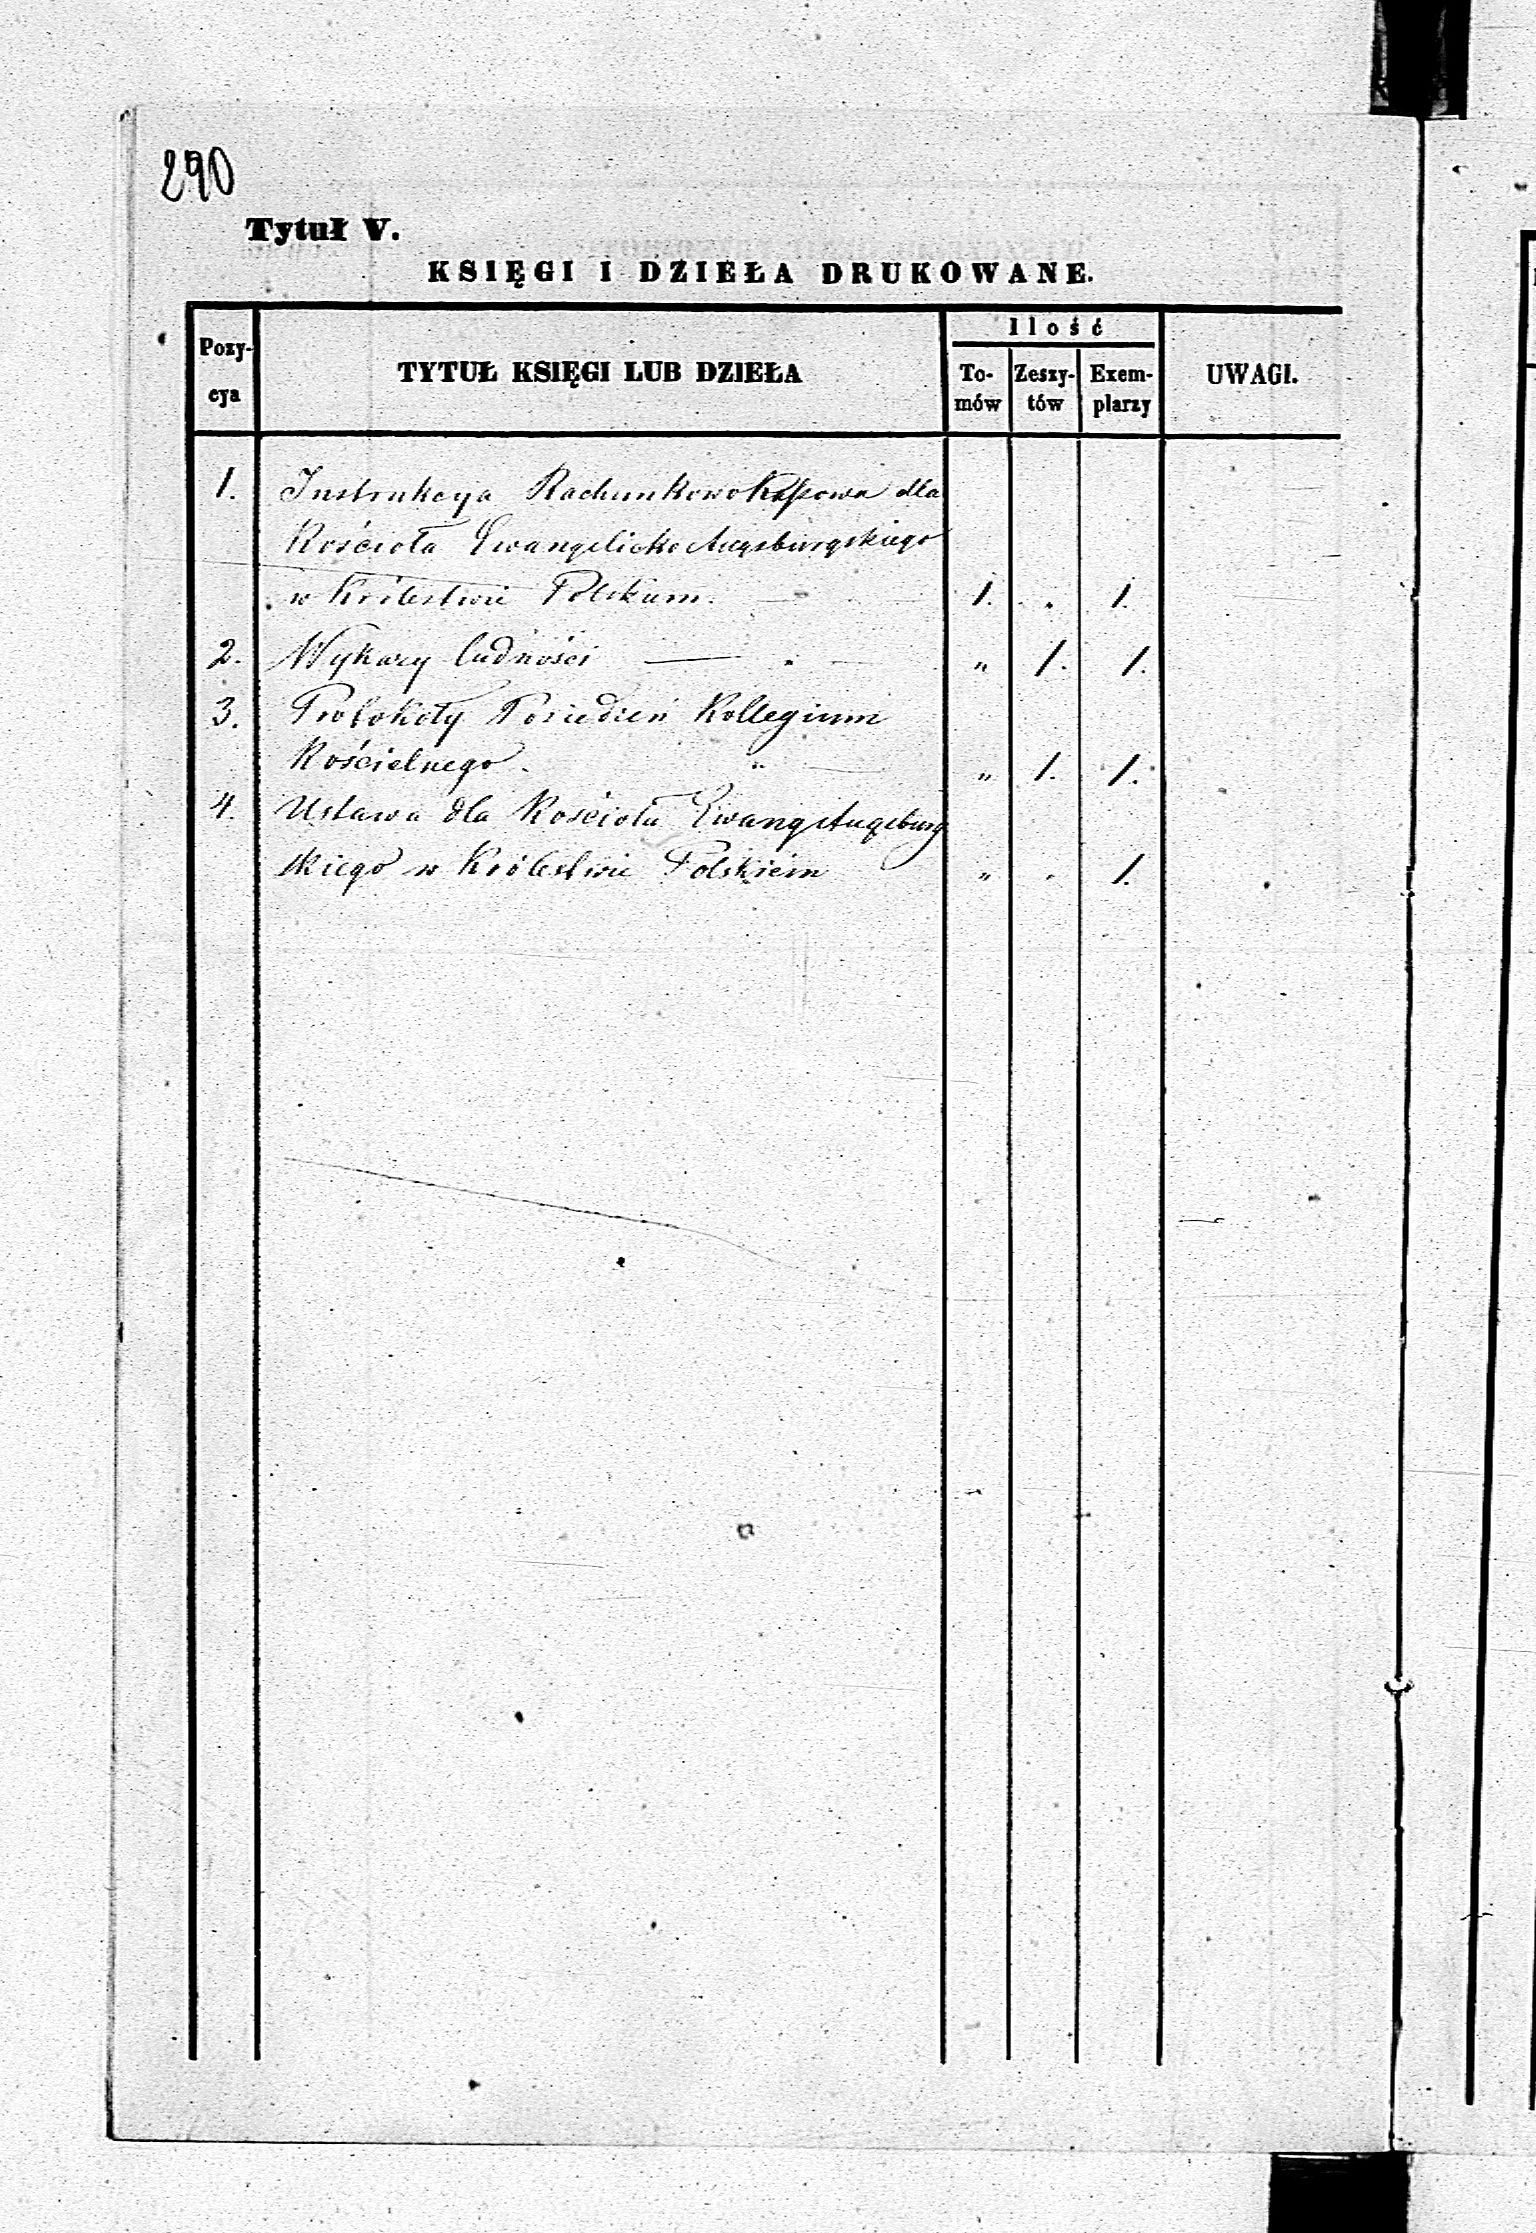 290
Tytuł V.
KSIĘGI I DZIEŁA DRUKOWANE.
Pozy-
cya
TYTUŁ KSIĘGI LUB DZIEŁA
Ilość
To-
mów
Zeszy-
tów
Exem-
plarzy
UWAGI.
1. Instrukcya Rachunkowo Kassowa dla
Kościoła Ewangelicko Augsburgskiego
w Królestwie Polskiem. — " — 1. " 1.
2. Wykazy ludności — " — " 1. 1.
3. Protokóły Posiedzeń Kollegium
Kościelnego. " — " 1. 1.
4. Ustawa dla Kościoła Ewang Augsburg
skiego w Królestwie Polskiém " " 1.